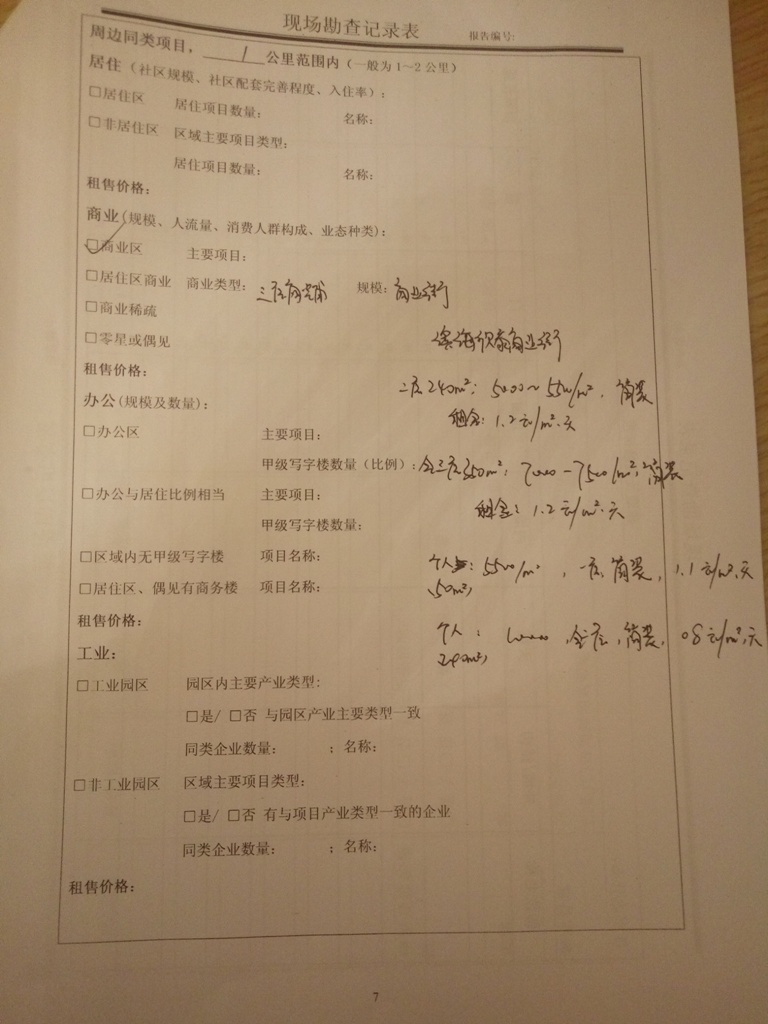 现场勘查记录表 报告编号:
周边同类项目， 1 公里范围内（一般为1~2公里）
居住（社区规模、社区配套完善程度、入住率）：
□居住区 居住项目数量： 名称：
□非居住区 区域主要项目类型：
居住项目数量： 名称：
租售价格：
商业(规模、人流量、消费人群构成、业态种类)：
☑商业区 主要项目：
□居住区商业 商业类型：三层商铺 规模：商业街
□商业稀疏
□零星或偶见 滨海欣嘉商业街
租售价格： 二层240m²：5000~5500/m²，简装
办公(规模及数量)： 租金：1.2元/m²·天
□办公区 主要项目：
甲级写字楼数量（比例）：全三层350m²：7000-7500/m²，简装
□办公与居住比例相当 主要项目： 租金：1.2元/m²·天
甲级写字楼数量：
□区域内无甲级写字楼 项目名称： 个人：5500/m²，一层，简装，1.1元/m²·天
□居住区、偶见有商务楼 项目名称： 50m²，
租售价格： 个人：10000，全层，简装，0.8元/m²·天
工业： 240m²，
□工业园区 园区内主要产业类型:
□是/ □否 与园区产业主要类型一致
同类企业数量： ；名称：
□非工业园区 区域主要项目类型：
□是/ □否 有与项目产业类型一致的企业
同类企业数量： ；名称：
租售价格：
7